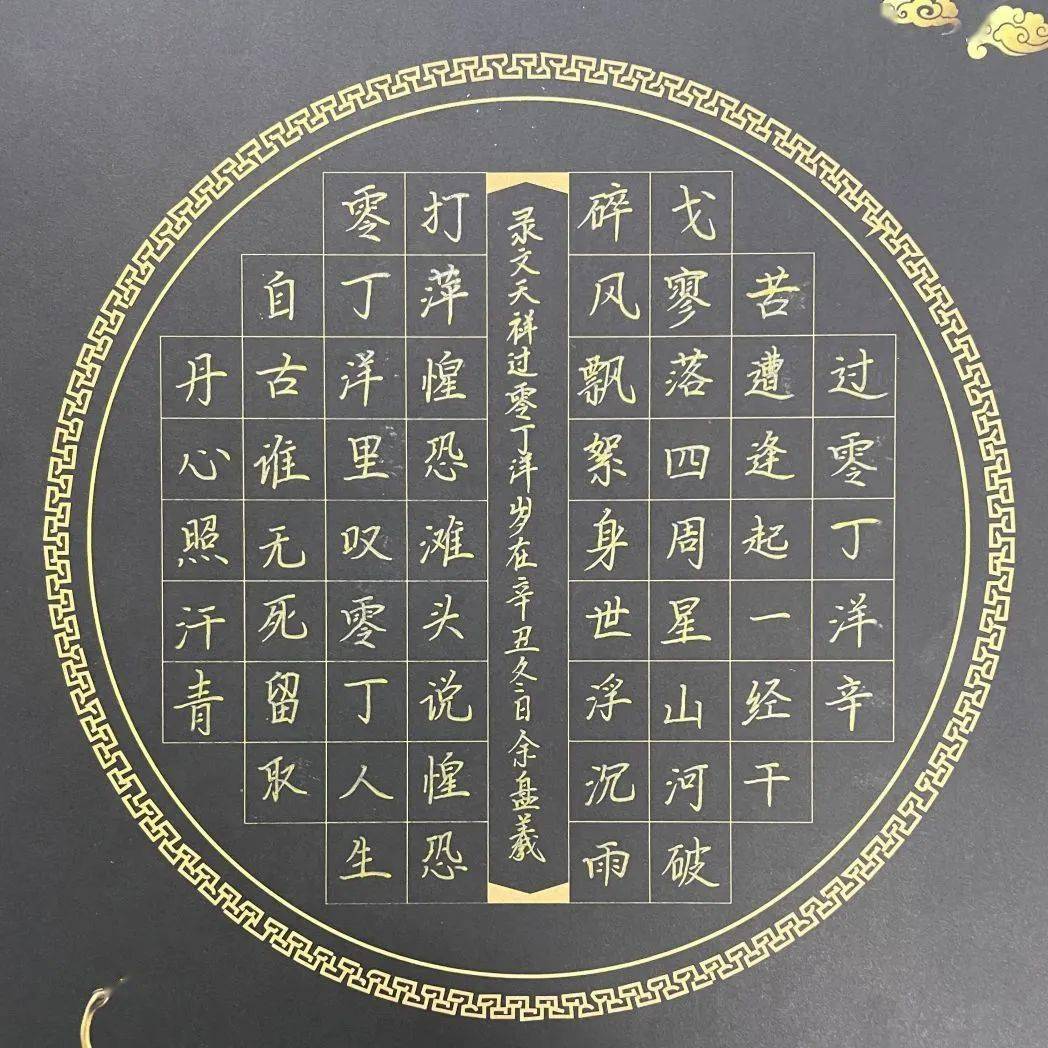 过零丁洋辛
苦遭逢起一经干
戈寥落四周星山河破
碎风飘絮身世浮沉雨
录文天祥过零丁洋岁在辛丑冬日余盘羲
打萍惶恐滩头说惶恐
零丁洋里叹零丁人生
自古谁无死留取
丹心照汗青